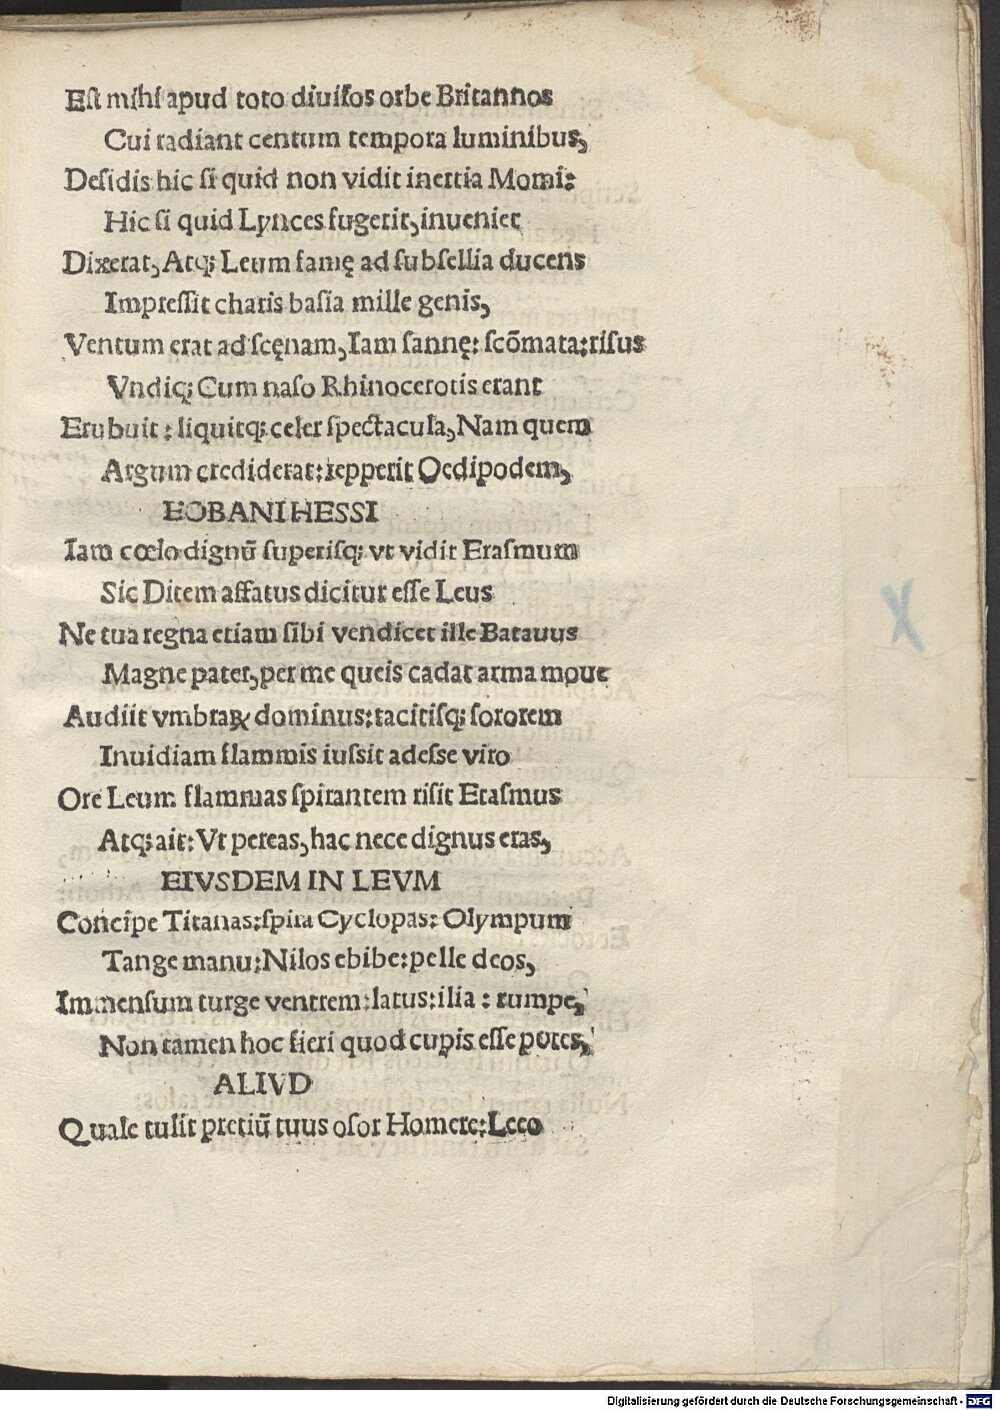 Eſt mihi apud toto diuiſos orbe Britannos
Cui radiant centum tempora luminibus,
Deſidis hic ſi quid non vidit inertia Momi:
Hic ſi quid Lynces fugerit, inueniet
Dixerat, Atq; Leum famę ad ſubſellia ducens
Impreſſit charis baſia mille genis,
Ventum erat ad ſcęnam, Iam ſannę: ſcōmata: riſus
Vndiq; Cum naſo Rhinocerotis erant
Erubuit: liquitq; celer ſpectacula, Nam quem
Argum crediderat: repperit Oedipodem,
EOBANI HESSI
Iam cœlo dignū ſuperiſq; vt vidit Eraſmum
Sic Ditem affatus dicitur eſſe Leus
Ne tua regna etiam ſibi vendicet ille Batauus
Magne pater, per me queis cadat arma moue
Audiit vmbraꝝ dominus: tacitiſq; ſororem
Inuidiam flammis iuſsit adeſse viro
Ore Leum flammas ſpirantem riſit Eraſmus
Atq; ait: Vt pereas, hac nece dignus eras,
EIVSDEM IN LEVM
Concipe Titanas: ſpira Cyclopas: Olympum
Tange manu: Nilos ebibe: pelle deos,
Immenſum turge ventrem: latus: ilia: rumpe,
Non tamen hoc fieri quod cupis eſſe potes,
ALIVD
Quale tulit pretiū tuus oſor Homere: Leeo
X
Digitalisierung gefördert durch die Deutsche Forschungsgemeinschaft - DFG